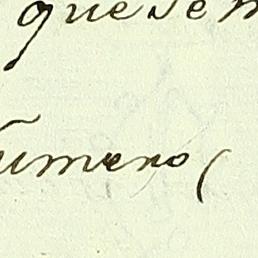 que se
umero (